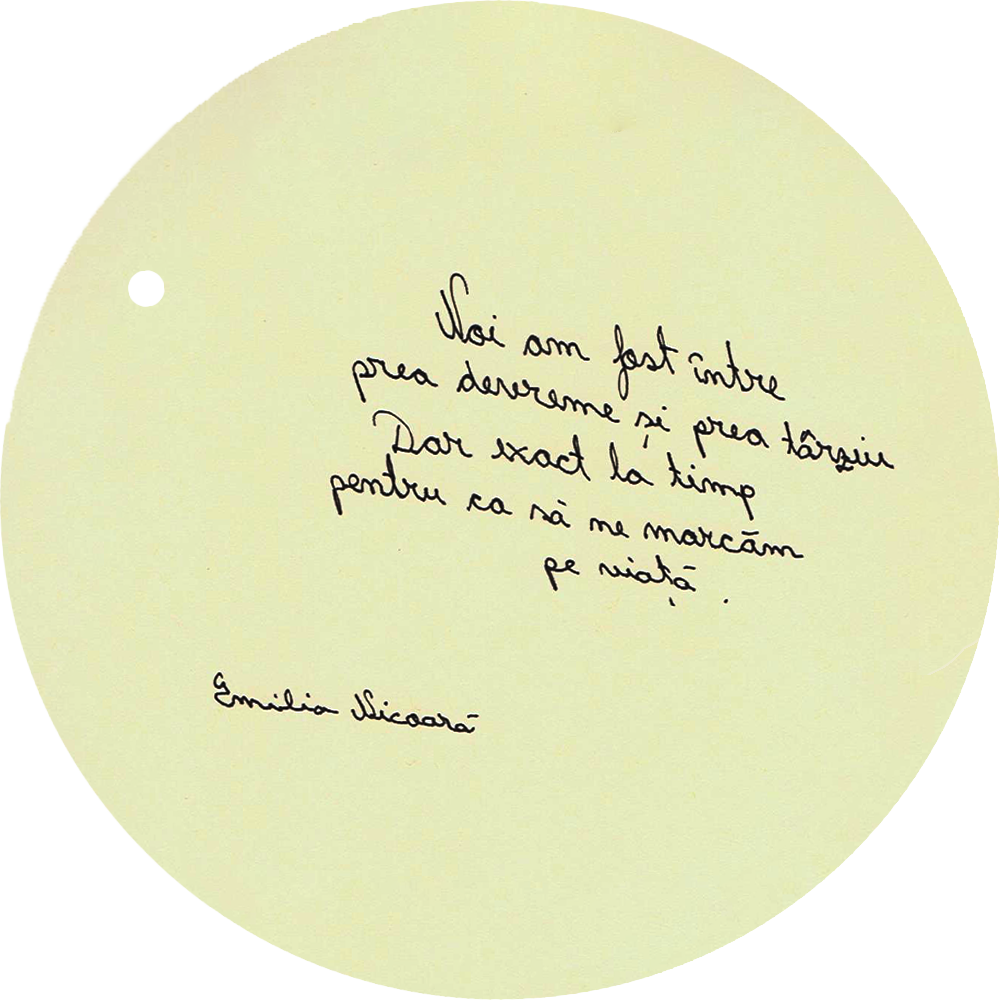 Noi am fost între
prea devreme și prea târziu
Dar exact la timp
pentru ca să ne marcăm
pe viață.
Emilia Nicoară